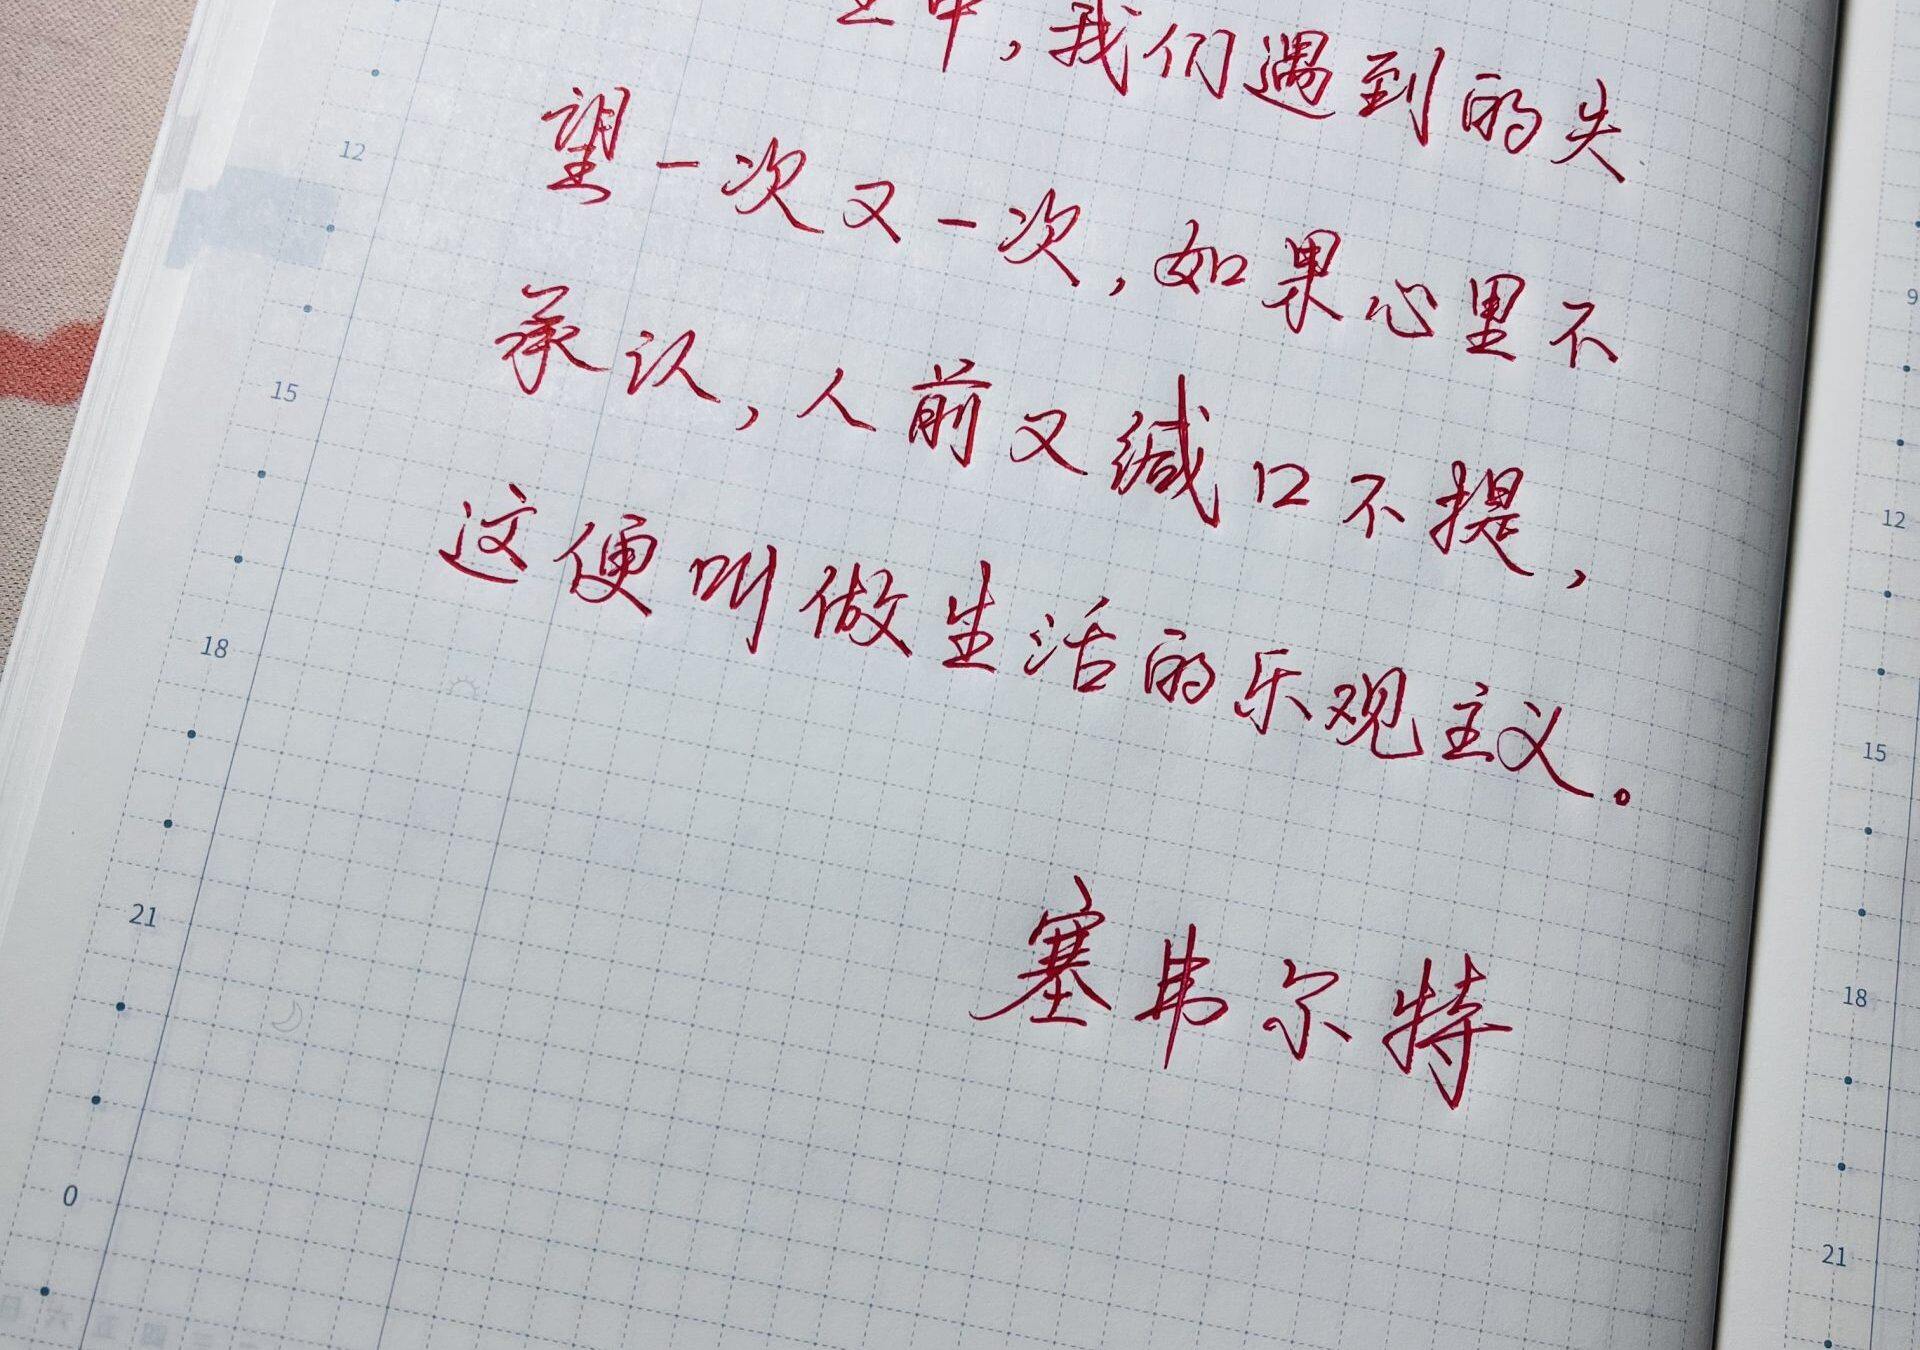 中，我们遇到的失
望一次又一次，如果心里不
承认，人前又缄口不提，
这便叫做生活的乐观主义。
塞弗尔特
12
15
18
21
0
9
12
15
18
21